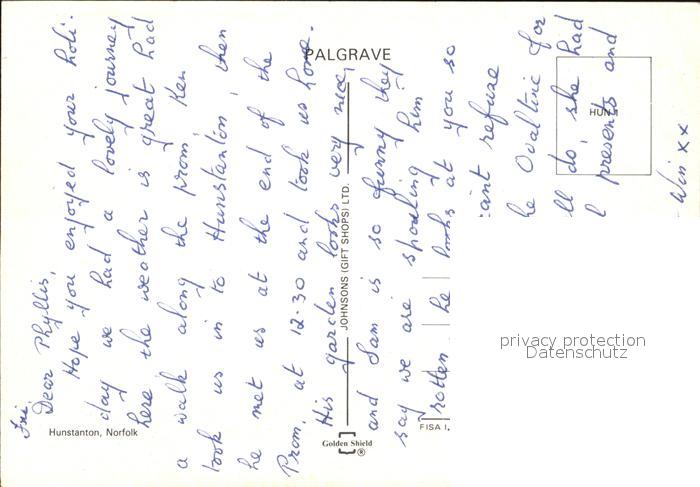 Fri.
Dear Phyllis,
Hope you enjoyed your holi-
day we had a lovely journey
here the weather is great had
a walk along the prom, Ken
took us in to Hunstanton, then
he met us at the end of the
Prom, at 12.30 and took us home.
His garden looks very nice,
and Sam is so funny they
say we are spoiling him
rotten he looks at you so
cant refuse
he Ovaltine for
ll do, she had
l presents and
Win xx
PALGRAVE
HUN 1
JOHNSONS (GIFT SHOPS) LTD.
Hunstanton, Norfolk
Golden Shield
®
FISA I.
privacy protection
Datenschutz